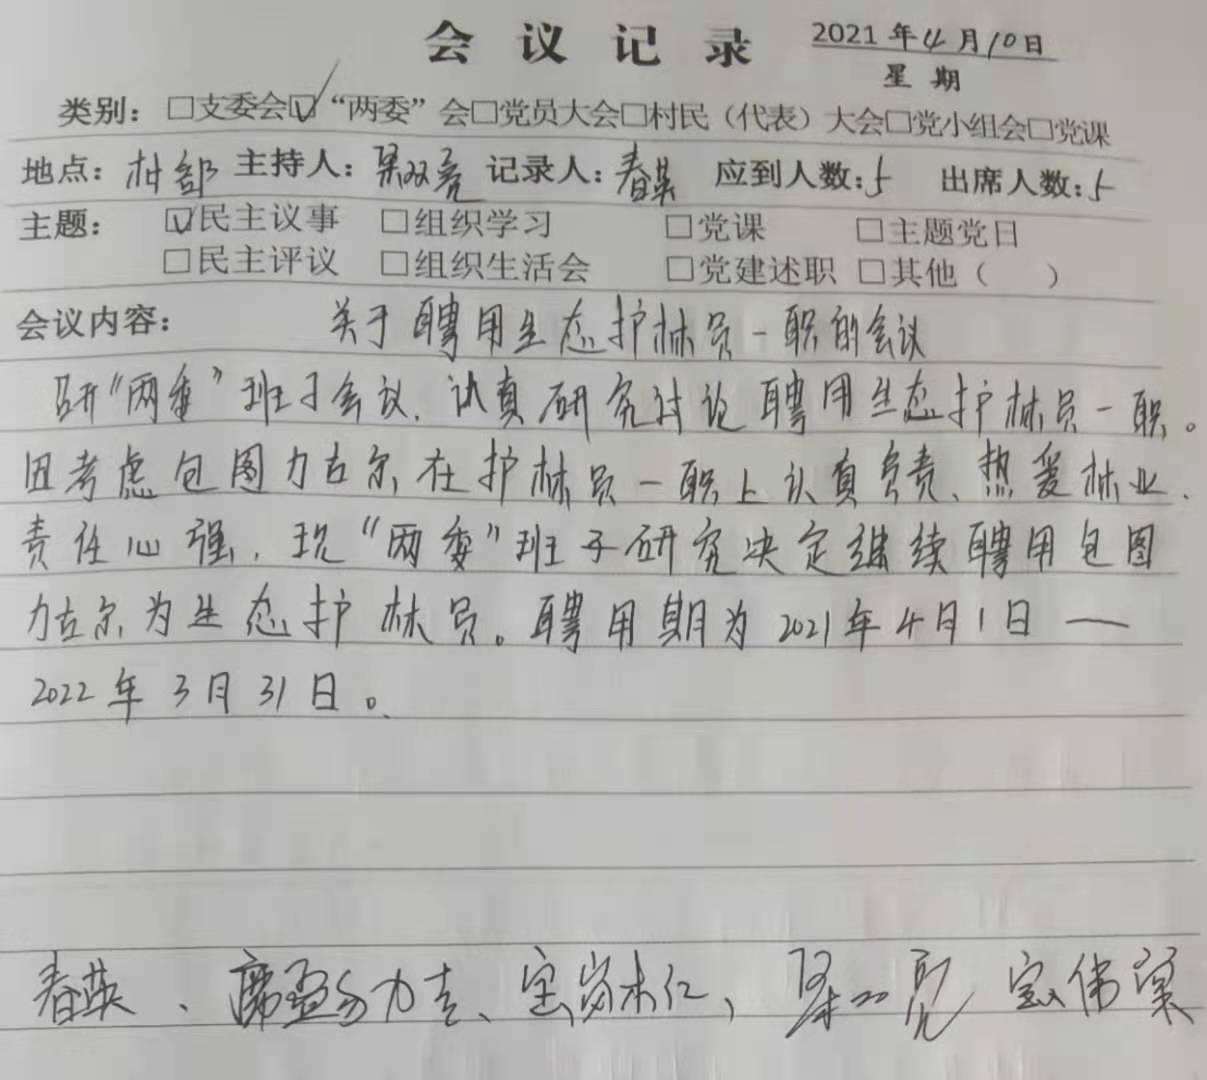 会议记录 2021年4月10日
星期
类别：□支委会☑“两委”会□党员大会□村民（代表）大会□党小组会□党课
地点：村部 主持人：梁双亮 记录人：春英 应到人数：5 出席人数：5
主题：☑民主议事 □组织学习 □党课 □主题党日
□民主评议 □组织生活会 □党建述职 □其他（ ）
会议内容： 关于聘用生态护林员一职的会议
召开“两委”班子会议，认真研究讨论聘用生态护林员一职。
因考虑包图力古尔在护林员一职上认真负责、热爱林业、
责任心强，现“两委”班子研究决定继续聘用包图
力古尔为生态护林员。聘用期为2021年4月1日——
2022年3月31日。
春英、席